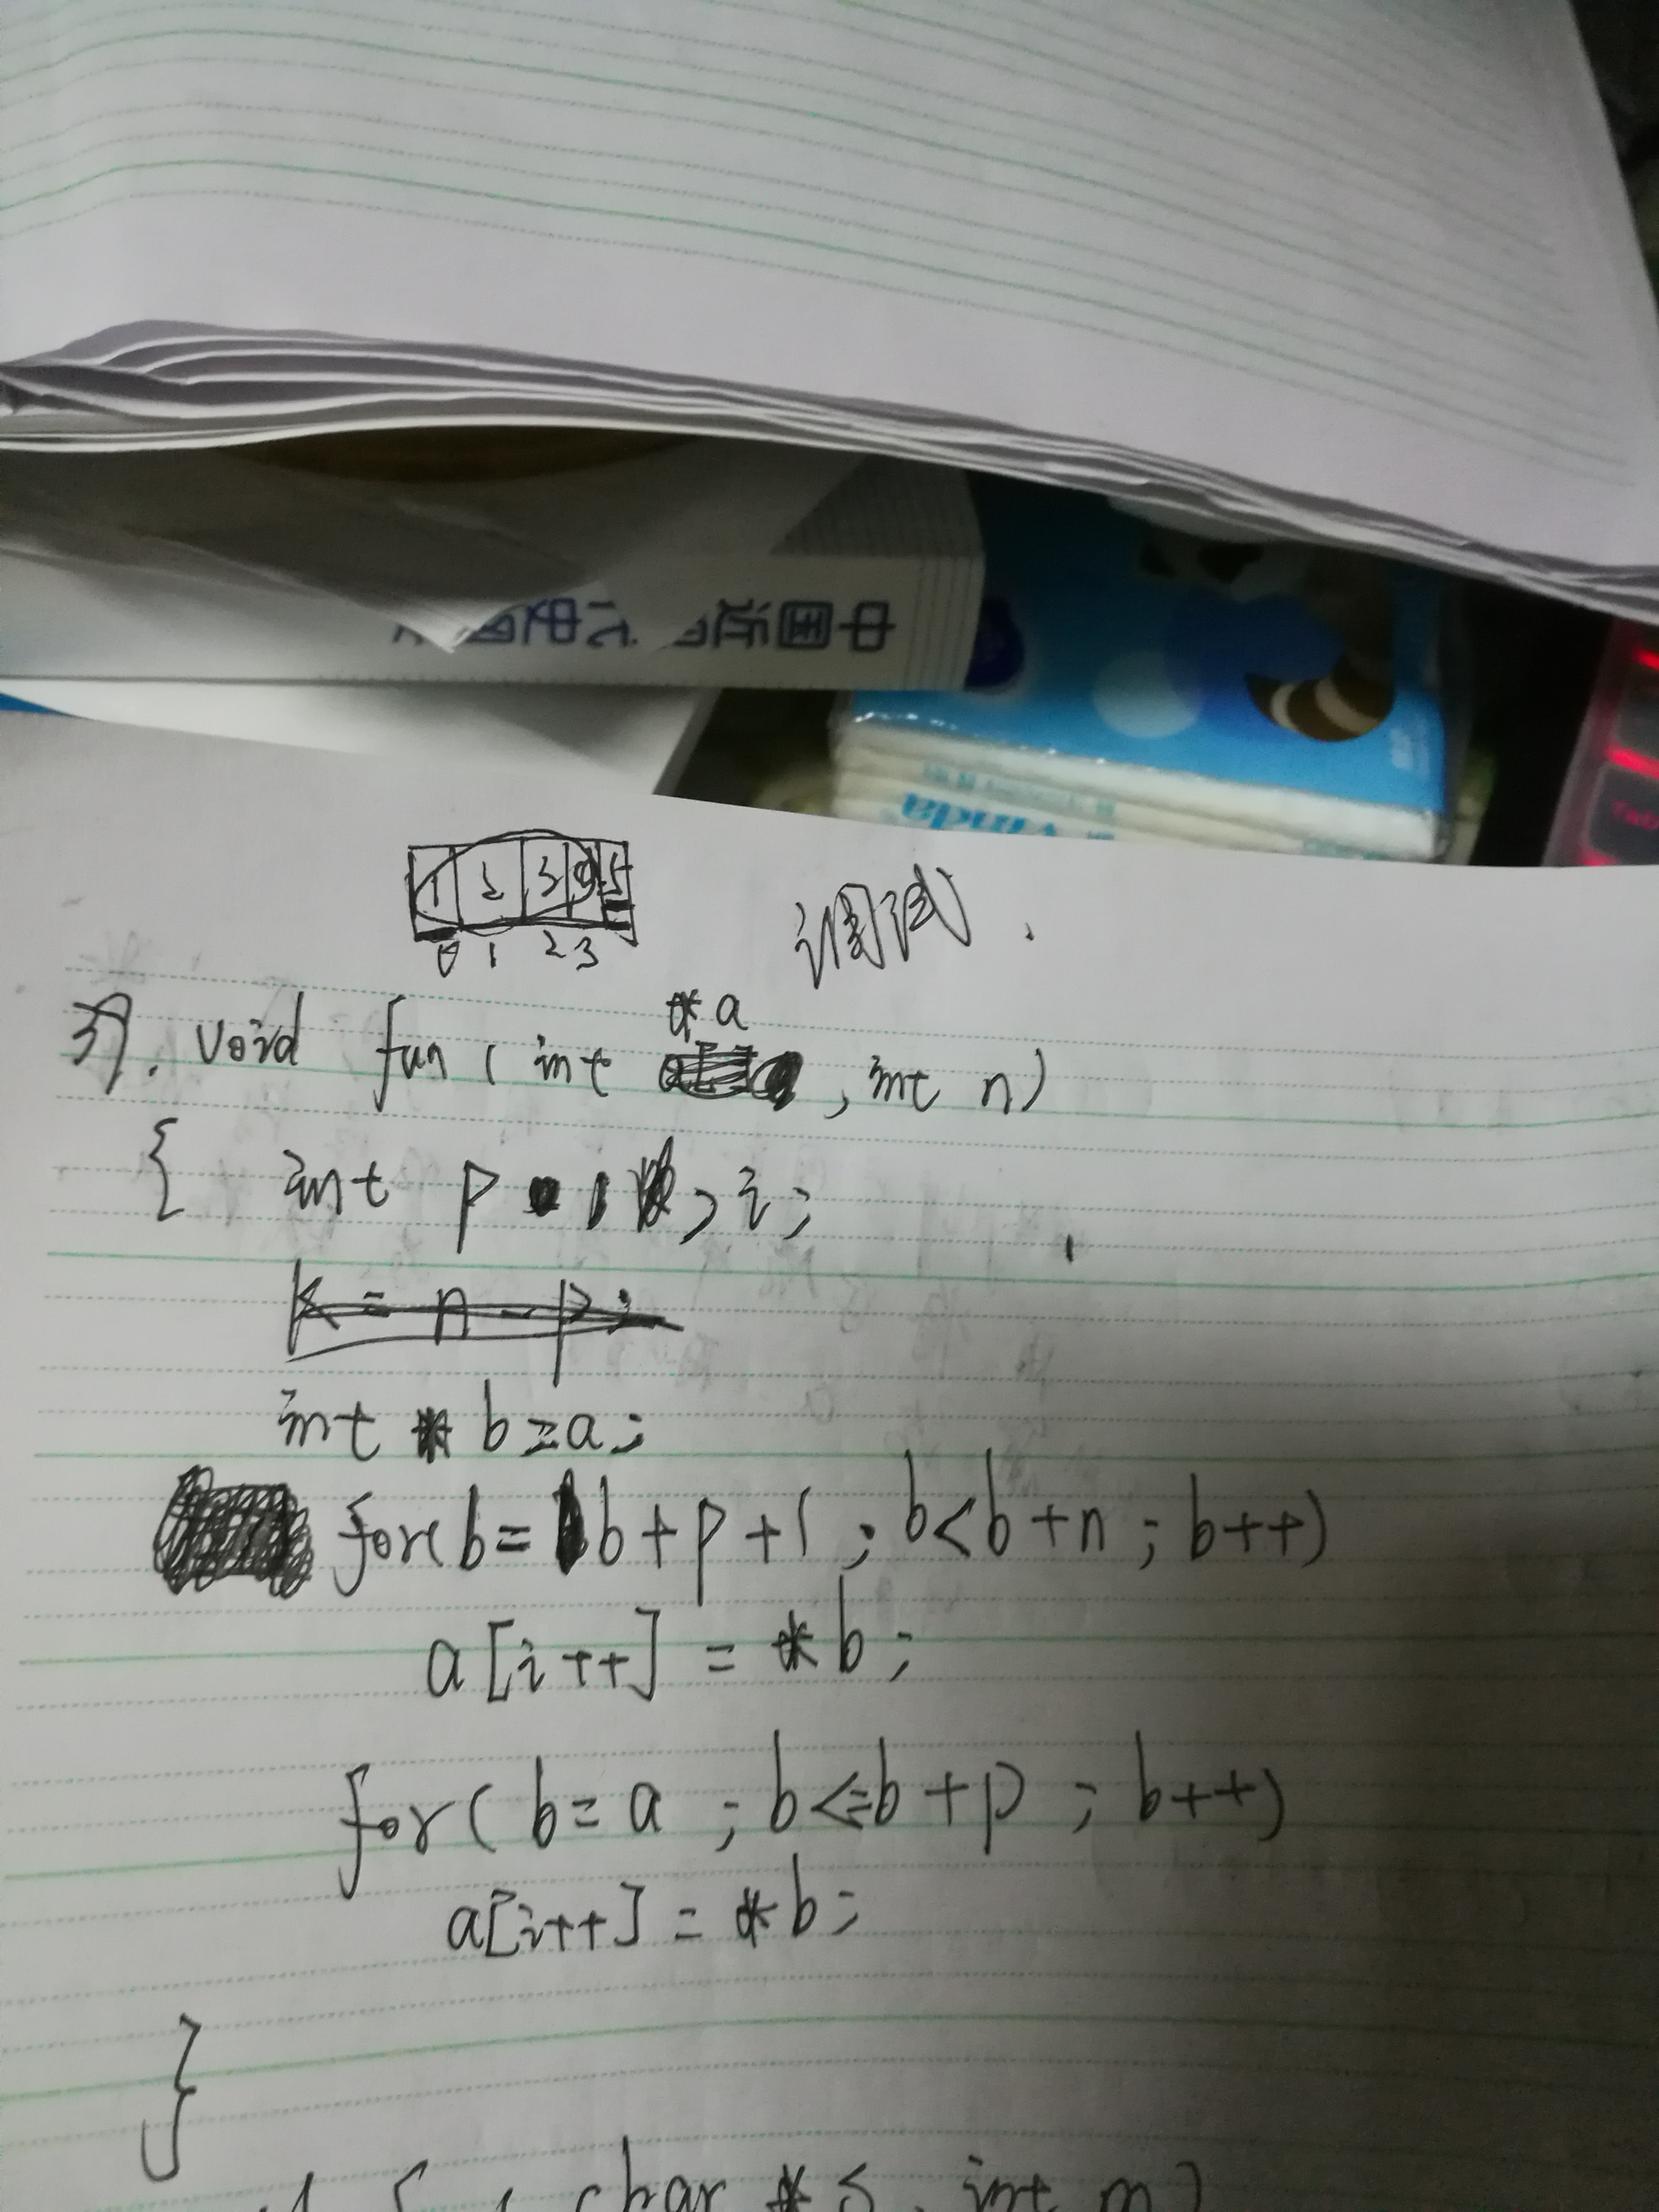 中国近
Vinda
Tab
1 2 3 4 5
0 1 2 3
调试.
37. void fun ( int *a , int n)
{ int p , i ;
k = n - p ;
int * b = a ;
for( b = b + p + 1 ; b < b + n ; b++ )
a [ i++ ] = * b ;
for ( b = a ; b <= b + p ; b++ )
a [ i++ ] = * b ;
}
char * s , int m )